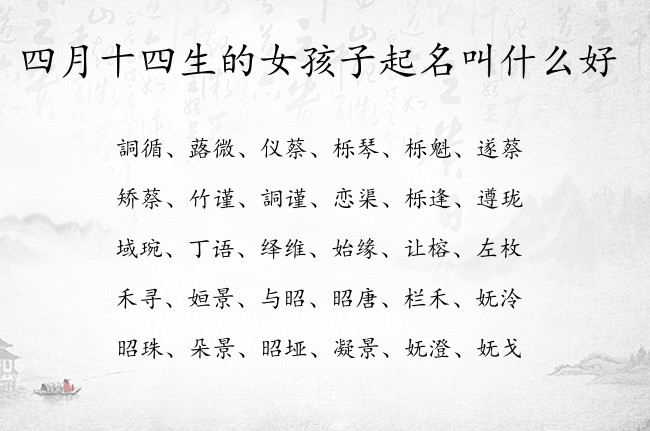 四月十四生的女孩子起名叫什么好
詷循、蕗微、仪蔡、栎琴、栎魁、遂蔡
矫蔡、竹谨、詷谨、恋渠、栎逢、遵珑
域琬、丁语、绎维、始缘、让榕、左枚
禾寻、姮景、与昭、昭唐、栏禾、妩泠
昭珠、朵景、昭垭、凝景、妩澄、妩戈